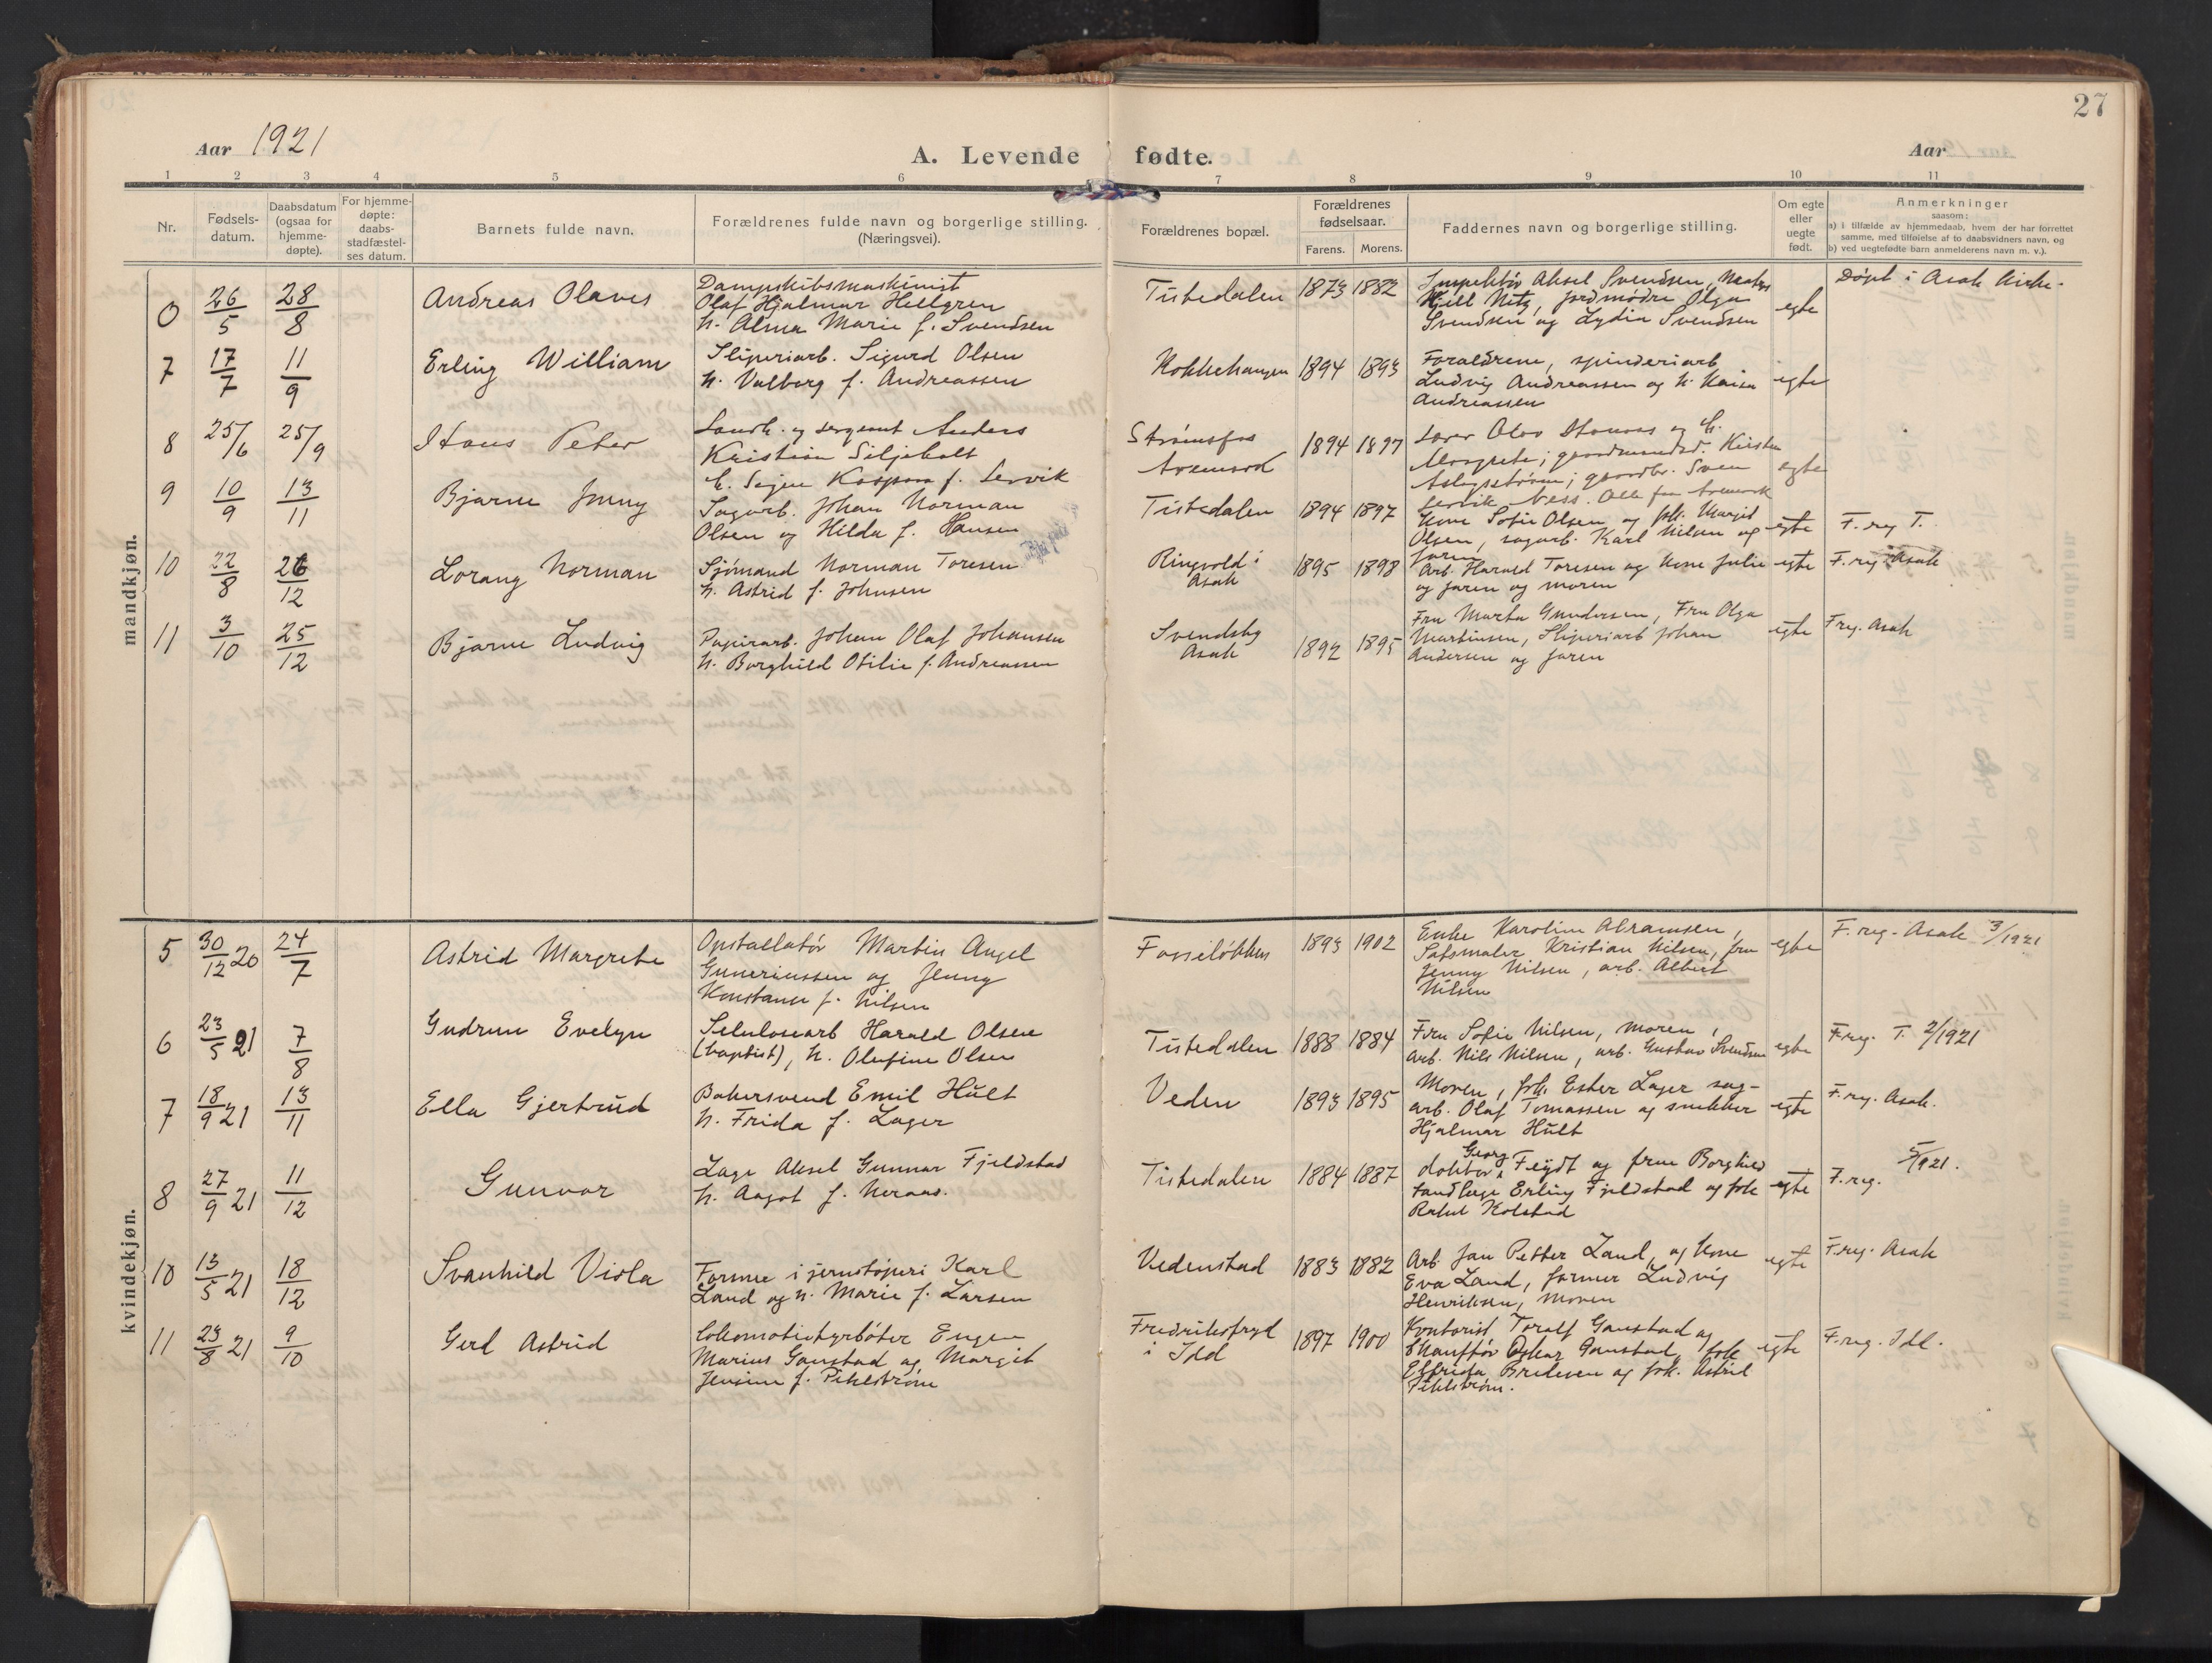 27
Aar 1921
A. Levende fødte.
Aar
1 2 3 4 5 6 7 8 9 10 11
Nr.
Fødsels-
datum.
Daabsdatum
(ogsaa for
hjemme-
døpte).
For hjemme-
døpte:
daabs-
stadfæstel-
ses datum.
Barnets fulde navn.
Forældrenes fulde navn og borgerlige stilling.
(Næringsvei).
Forældrenes bopæl.
Forældrenes
fødselsaar.
Farens. Morens.
Faddernes navn og borgerlige stilling.
Om egte
eller
uegte
født.
Anmerkninger
saasom:
a) i tilfælde av hjemmedaab, hvem der har forrettet
samme, med tilføielse af to daabsvidners navn, og
b) ved uegtefødte barn anmelderens navn m. v.).
mandkjøn.
26/5 28/8 Andreas Olaves
Dampskibsmaskinist
Olaf Hjalmar Hellgren
h. Alma Marie f. Svendsen
Tistedalen 1873 1882
Inspektør Aksel Svendsen,
jordmødre Olga
Svendsen og Lydia Svendsen
egte
Døpt i Asak kirke.
7 17/7 11/9 Erling William
Sliperiarb. Sigurd Olsen
h. Valborg f. Andreassen
1894 1893
Forældrene, spinderiarb.
Ludvig Andreassen og h. Kaisa
Andreassen
egte
8 25/6 25/9 Hans Peter
og sergeant Anders
Kristian Siljebolt
f. Lervik
Strømsfos
1894 1897
Lærer Olav
Margrete; Kirsten
gaardbr. Sven
Lervik
egte
9 10/9 13/11 Bjarne Jenny
Sagarb. Johan Norman
Olsen og Hilda f. Hansen
Tistedalen 1894 1897
Kone Sofie Olsen og frk. Margit
Olsen, sagarb. Karl Nilsen og
faren
egte
F. reg T.
10 22/8 26/12 Lorang Norman
Sjømand Norman Toresen
h. Astrid f. Johnsen
Ringvold i
Asak
1895 1898
Arb. Harald Toresen og kone Julie
og faren og moren
egte
F. reg Asak
11 3/10 25/12 Bjarne Ludvig
Papirarb. Johan Olaf Johansen
h. Borghild Otilie f. Andreassen
Svendsby
Asak
1892 1895
Fru Marta Gundersen, Fru Olga
Martinsen, Sliperiarb Johan
Andersen og faren
egte
F reg. Asak
kvindekjøn.
5 30/12 20 24/7 Astrid Margrete
Opstallatør Martin Angel
Guneriussen og Jenny
Konstanse f. Nilsen
Fosseløkken 1893 1902
Enke Karoline Abramsen,
Kristian Nilsen, fru
Jenny Nilsen, arb. Albert
Nilsen
egte
F. reg. Asak 3/1921
6 23/5 21 7/8 Gudrun Evelyn
Celulosearb Harald Olsen
(baptist), h. Olufine Olsen
Tistedalen 1888 1884
Fru Sofie Nilsen, moren,
arb. Nils Nilsen, arb. Gustav Svendsen
egte
F reg. T. 2/1921
7 18/9 21 13/11 Ella Gjertrud
Bakersvend Emil Hult
h. Frida f. Lager
Veden 1893 1895
Moren, frk. Ester Lager sag-
arb. Olaf Tomassen og snekker
Hjalmar Hult
egte
F. reg. Asak.
8 27/9 21 11/12 Gunvor
Læge Aksel Gunnar Fjeldstad
h. Aagot f.
Tistedalen 1884 1887
doktor Georg Feydt og frue Borghild
tandlæge Erling Fjeldstad og frk
Kolstad
egte
F. reg. 5/1921.
10 13/5 21 18/12 Svanhild Viola
Former i jernstøperi Karl
Land og h. Marie f. Larsen
Vedenstad 1883 1882
Arb. Jan Petter Land, og kone
Eva Land, former Ludvig
Henriksen, moren
egte
F reg. Asak
11 23/8 21 9/10 Gerd Astrid
Lokomotivfyrbøter Eugen
Marius Ganstad og Margit
Jensine f. Pihlstrøm
Fredriksfryd
i Idd
1897 1900
Kontorist Toralf Ganstad og
Chauffør Oskar Ganstad, frk
Elfrida Bredesen og frk. Astrid
Pihlstrøm.
egte
F. reg. Idd.